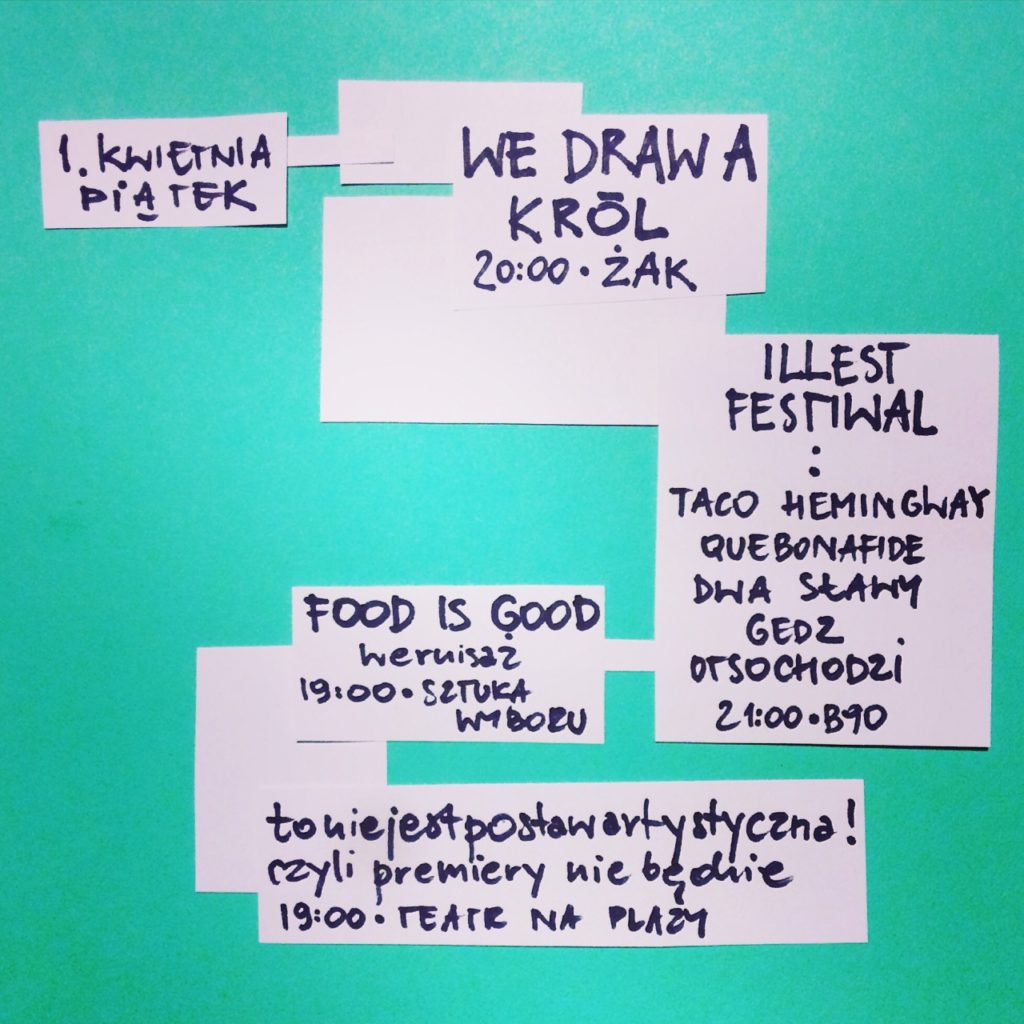 1. KWIETNIA
PIĄTEK
WE DRAW A
KRÓL
20:00 • ŻAK
ILLEST
FESTIWAL
:
TACO HEMINGWAY
QUEBONAFIDE
DWA SŁAWY
GEDZ
OTSOCHODZI
21:00 • B90
FOOD IS GOOD
wernisaż
19:00 • SZTUKA
WYBORU
toniejestpostawartystyczna!
czyli premiery nie będzie
19:00 • TEATR NA PLAŻY